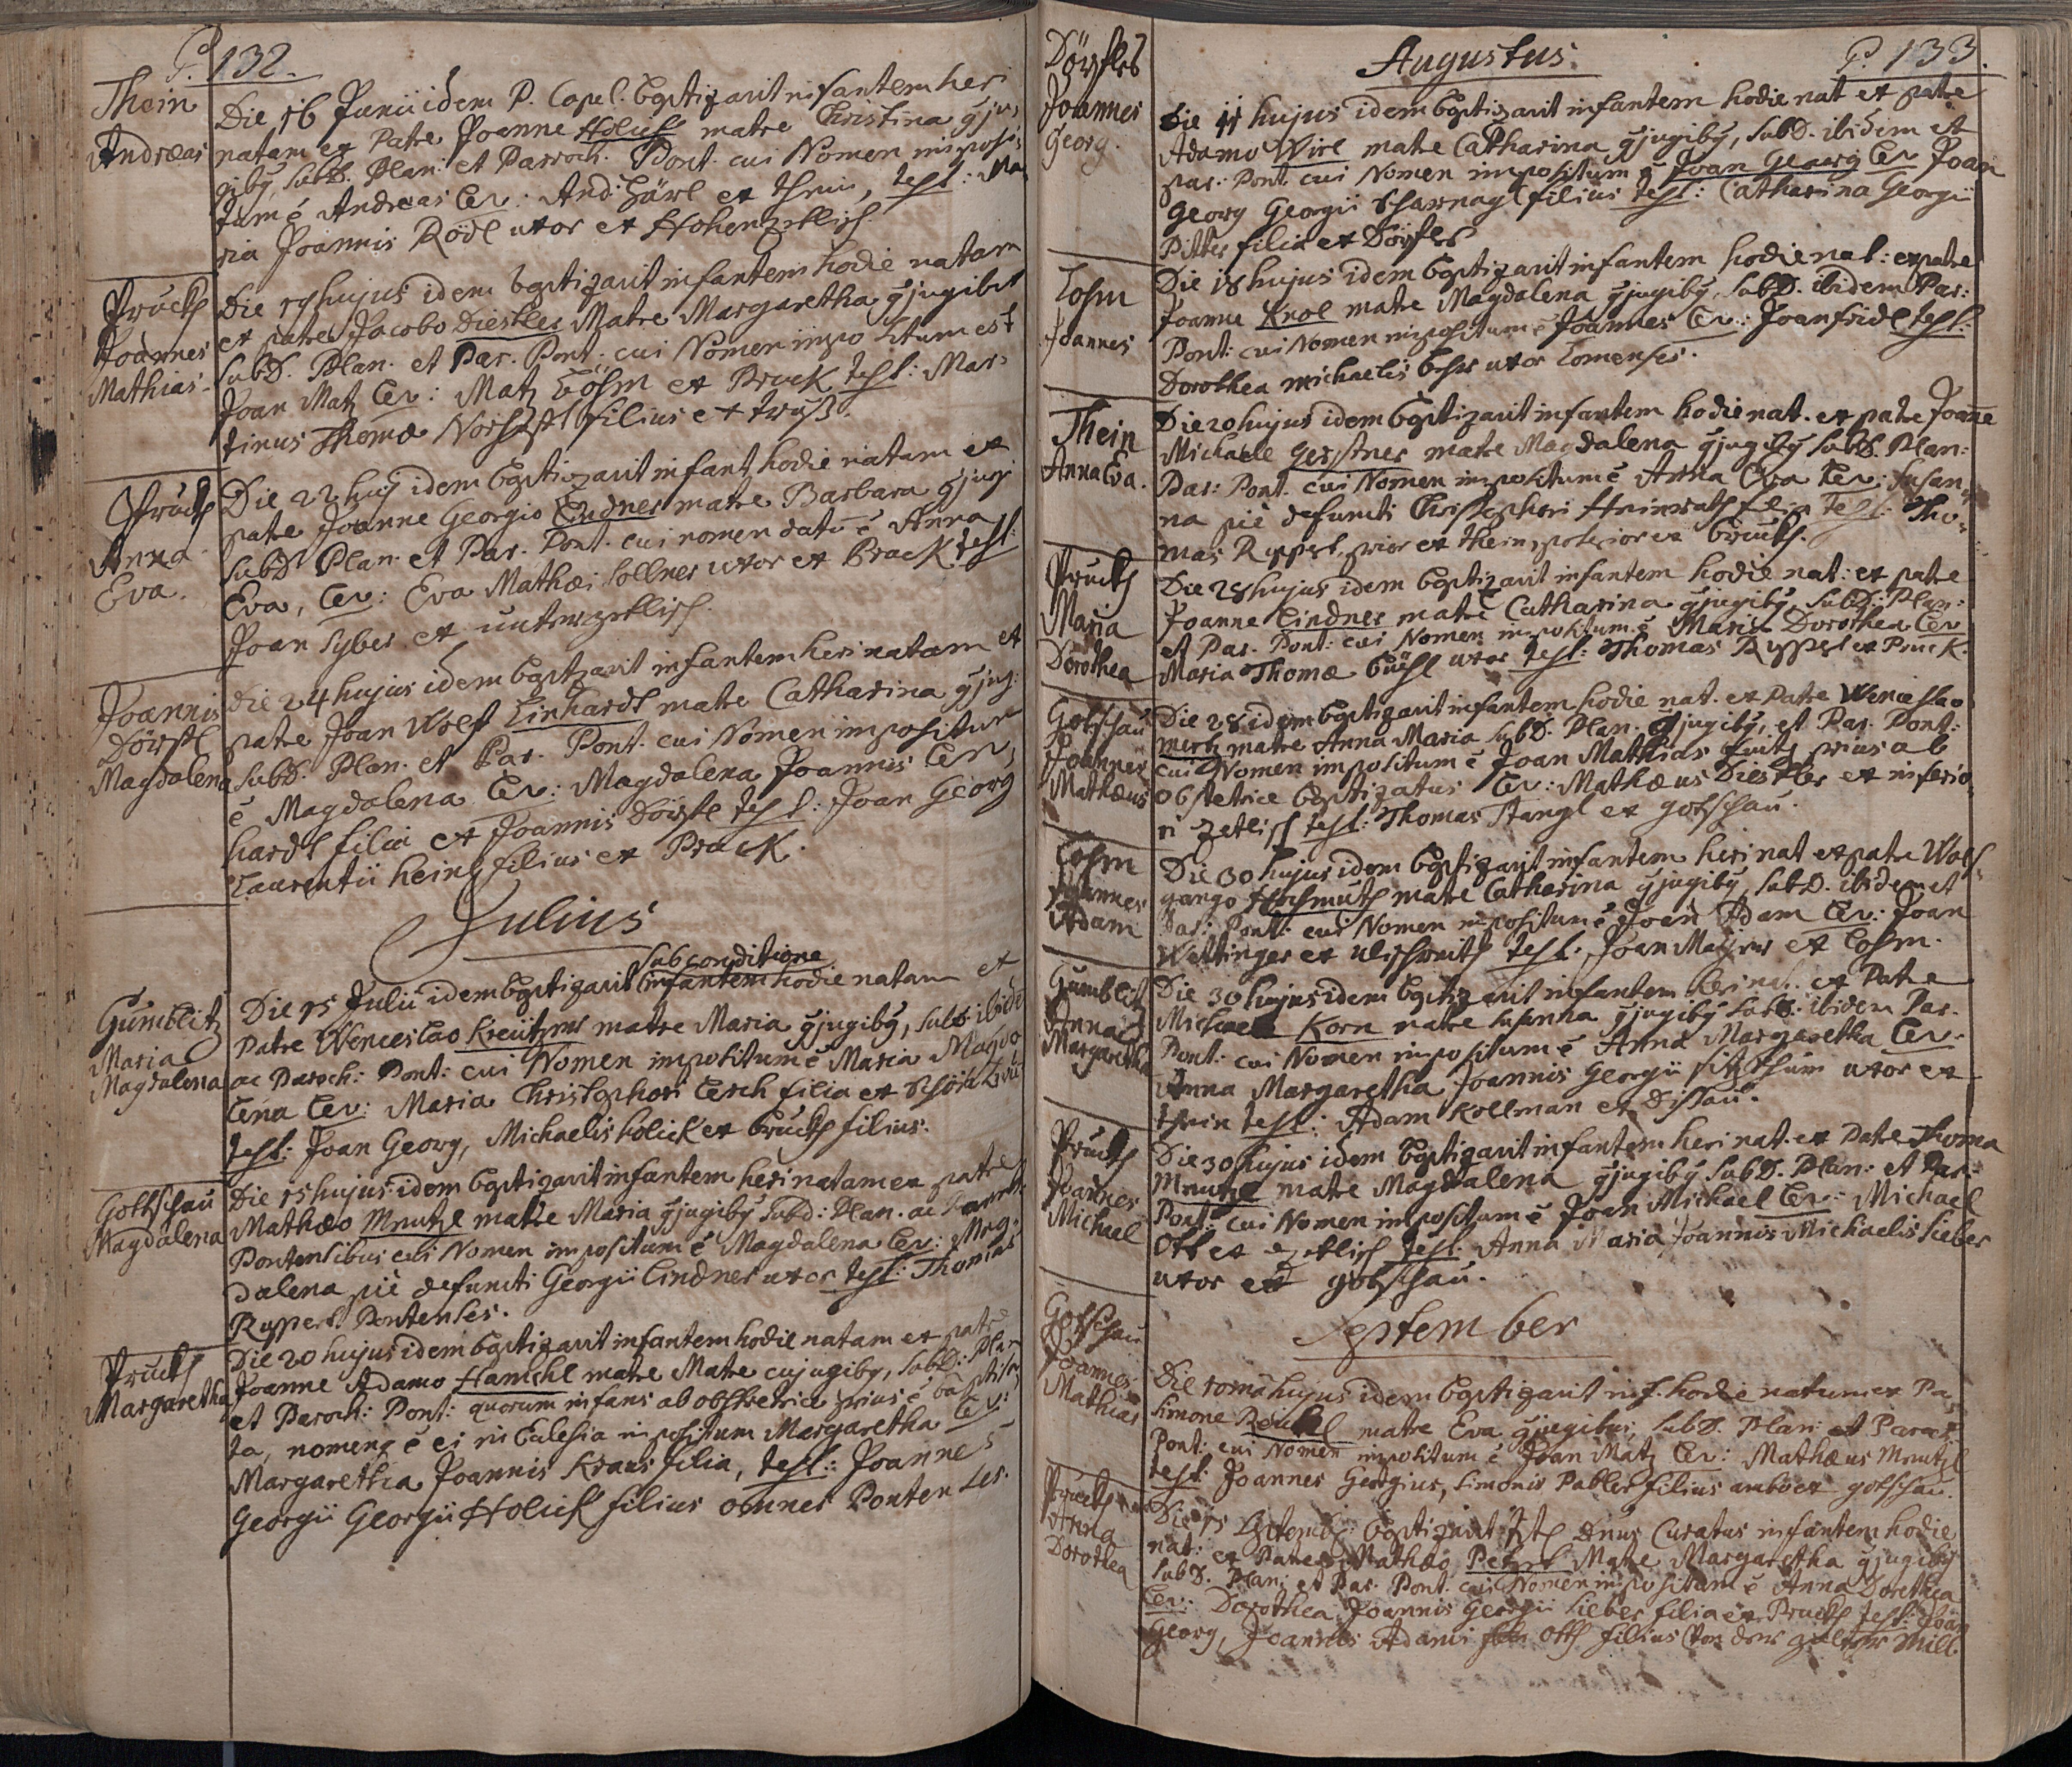 P. 132.
Thein
Andreas
Die 16 Junii idem P. Capel. baptizavit infantem heri
natam ex Patre Joanne Holick matre Christina gju
giby, subD. Plan: et Parroch. Pont. cui Nomen imposi:
tum ē Andreas Lev: And: Härl ex thein, test: Ma
ria Joannis Rödl uxor ex Hohenzetlisch
Pruckh
Joannes
Mathias
Die 19 hujus idem baptizavit infantem hodie natam
ex patre Jacobo Diestler Matre Margaretha gjugibus
subD. Plan. et Par. Pont. cui Nomen impositum est
Joan Matz Lev: Matz Böhm ex Bruck test: Mar:
tinus Thomæ filius ex truß.
Pruckh
Anna
Eva.
Die 22 huj idem baptizavit infant hodie natam ex
patre Joanne Georgio Lindner matre Barbara gjugi
subD Plan. et Par. Pont. cui nomen datū ē Anna
Eva, Lev: Eva Mathæi Sollner uxor ex Bruck test:
Joan Syber ex unterzetlisch.
Joannis
Dörfl
Magdalena
Die 24 hujus idem baptzavit infantem heri natam ex
patre Joan Wolf Linhardt matre Catharina gjug:
subD. Plan. et Par. Pont. cui Nomen impositum
ē Magdalena Lev: Magdalena Joannis Len,
hardt filia ex Joannis dörfl test: Joan Georg
Laurentii heinl filius ex Pruck.
Julius
sub conditione
Gumblitz
Maria
Magdalena
Die 15 Julii idem baptizavit infantem hodie natam ex
Patre Wenceslao Kreutzer matre Maria gjugiby, subD ibide
ac Paroch: Pont: cui Nomen impositum ē Maria Magda
lena Lev: Maria Christophori Lerch filia ex
test: Joan Georg, Michaelis holick ex bruckh filius.
Gottschau
Magdalena
Die 15 hujus idem baptizavit infantem heri natam ex patre
Mathæo Mnutzl matre Maria gjugiby subd: Plan. ac
Pontensibus cui Nomen impositum ē Magdalena Lev: Mag,
dalena piè defuncti Georgii Lindner uxor test: Thomas
Rypperl Pontenses.
Pruckh
Margaretha
Die 20 hujus idem baptizavit infantem hodie natam ex patre
Joanne Adamo Hanickl matre Matre cujugiby, subD: Plan
et Paroch: Pont: quorum infans ab obstetrice prius ē baptiza
ta, nomenq ē ei in Eclesia impositum Margaretha Lev:
Margaretha Joannis Kraus filia, test: Joannes
Georgii Georgii Holick filius omnes Pontenses.
Augustus.
P. 133.
Dörfles
Joannes
Georg.
Die 11 hujus idem baptizavit infantem hodie nat ex patre
Adamo Wirl matre Catharina gjugiby, subD. ibidem et
par: Pont. cui Nomen impositum ē Joan Georg Lev Joan
Georg Georgii Scharnagl filius test: Catharina Georgii
Pitter filia ex Dörfles
Lohm
Joannes
Die 18 hujus idem baptizavit infantem hodie nat: ex patre
Joanne Knol matre Magdalena gjugiby, subD. ibidem Par:
Pont: cui Nomen impositum ē Joannes Lev: Joan fridl test:
Dorothea Michaelis uxor Lomenses.
Thein
Anna Eva.
Die 20 hujus idem baptizavit infantem hodie nat. ex patre Joanne
Michaele Gerstner matre Magdalena gjugiby subD. Plan:
Par: Pont. cui Nomen impositum ē Anna Eva Lev: Susan,
na piè defuncti Christophori Heinrath filia test: Tho,
mas Ryppel, prior ex thein, posterior ex bruckh.
Pruckh
Maria
Dorothea
Die 28 hujus idem baptizavit infantem hodie nat: ex patre
Joanne Lindner matre Catharina gjugiby subD: Plan:
et Par. Pont: cui Nomen impositum ē Maria Dorothea Lev
Maria Thomæ uxor test: Thomas Ryppel ex Pruck.
Gotschau
Joannes
Mathæus
Die 28 idem baptizavit infantem hodie nat. ex Patre Wenceslao
mertz matre Anna Maria subD. Plan. gjugiby, et Par. Pont:
cui Nomen impositum ē Joan Mathias fuit prius ab
obstetrice baptizatus Lev: Mathæus Diestler ex inferio,
ri zetlisch test: Thomas Stangl ex gotschau.
Lohm
Joannes
Adam
Die 30 hujus idem baptizavit infantem heri nat ex patre Wolf,
gango matre Catharina gjugiby, subD. ibidem et
Par: Pont: cui Nomen impositum ē Joan Adam Lev: Joan
Wettinger ex test: Joan ex Lohm.
Gumblitz
Anna
Margaretha
Die 30 hujus idem baptizavit infantem heri nat. ex Patre
Michaele Korn matre susanna gjugiby subD. ibidem Par.
Pont: cui Nomen impositum ē Anna Margaretha Lev:
Anna Margaretha Joannis Georgii sitzthum uxor ex
thein test: Adam Kollman ex dissau.
Pruckh
Joannes
Michael
Die 30 hujus idem baptizavit infantem heri nat. ex Patre Thoma
Mnutzl matre Magdalena gjugiby subD. Plan: et Par:
Pont: cui Nomen impositum ē Joan Michael Lev: Michael
Ott ex zetlisch test: Anna Maria Joannis Michaelis Sieber
uxor ex gotschau.
September
Gotschau
Joannes
Mathias
Die 10mā hujus idem baptizavit inf. hodie natum ex Pa
Simone matre Eva gjugibus, subD. Plan: et Paroch
Pont: cui Nomen impositum ē Joan Matz Lev: Mathæus Mnutzl
test: Joannes Georgius, Simonis Pabler filius ambo ex gotschau.
Pruckh
Anna
Dorothea
Die 15 Septemb: baptizavit Dnus Curatus infantem hodie
nat: ex Patre Mathæo Matre Margaretha gjugiby
subD. Plan: et Par. Pont. cui Nomen impositum ē Anna Dorothea
Lev: Dorothea Joannis Georgii Sieber filia ex Pruckh test: Joan
Georg, Joannes Adami Ott filius von der Mill